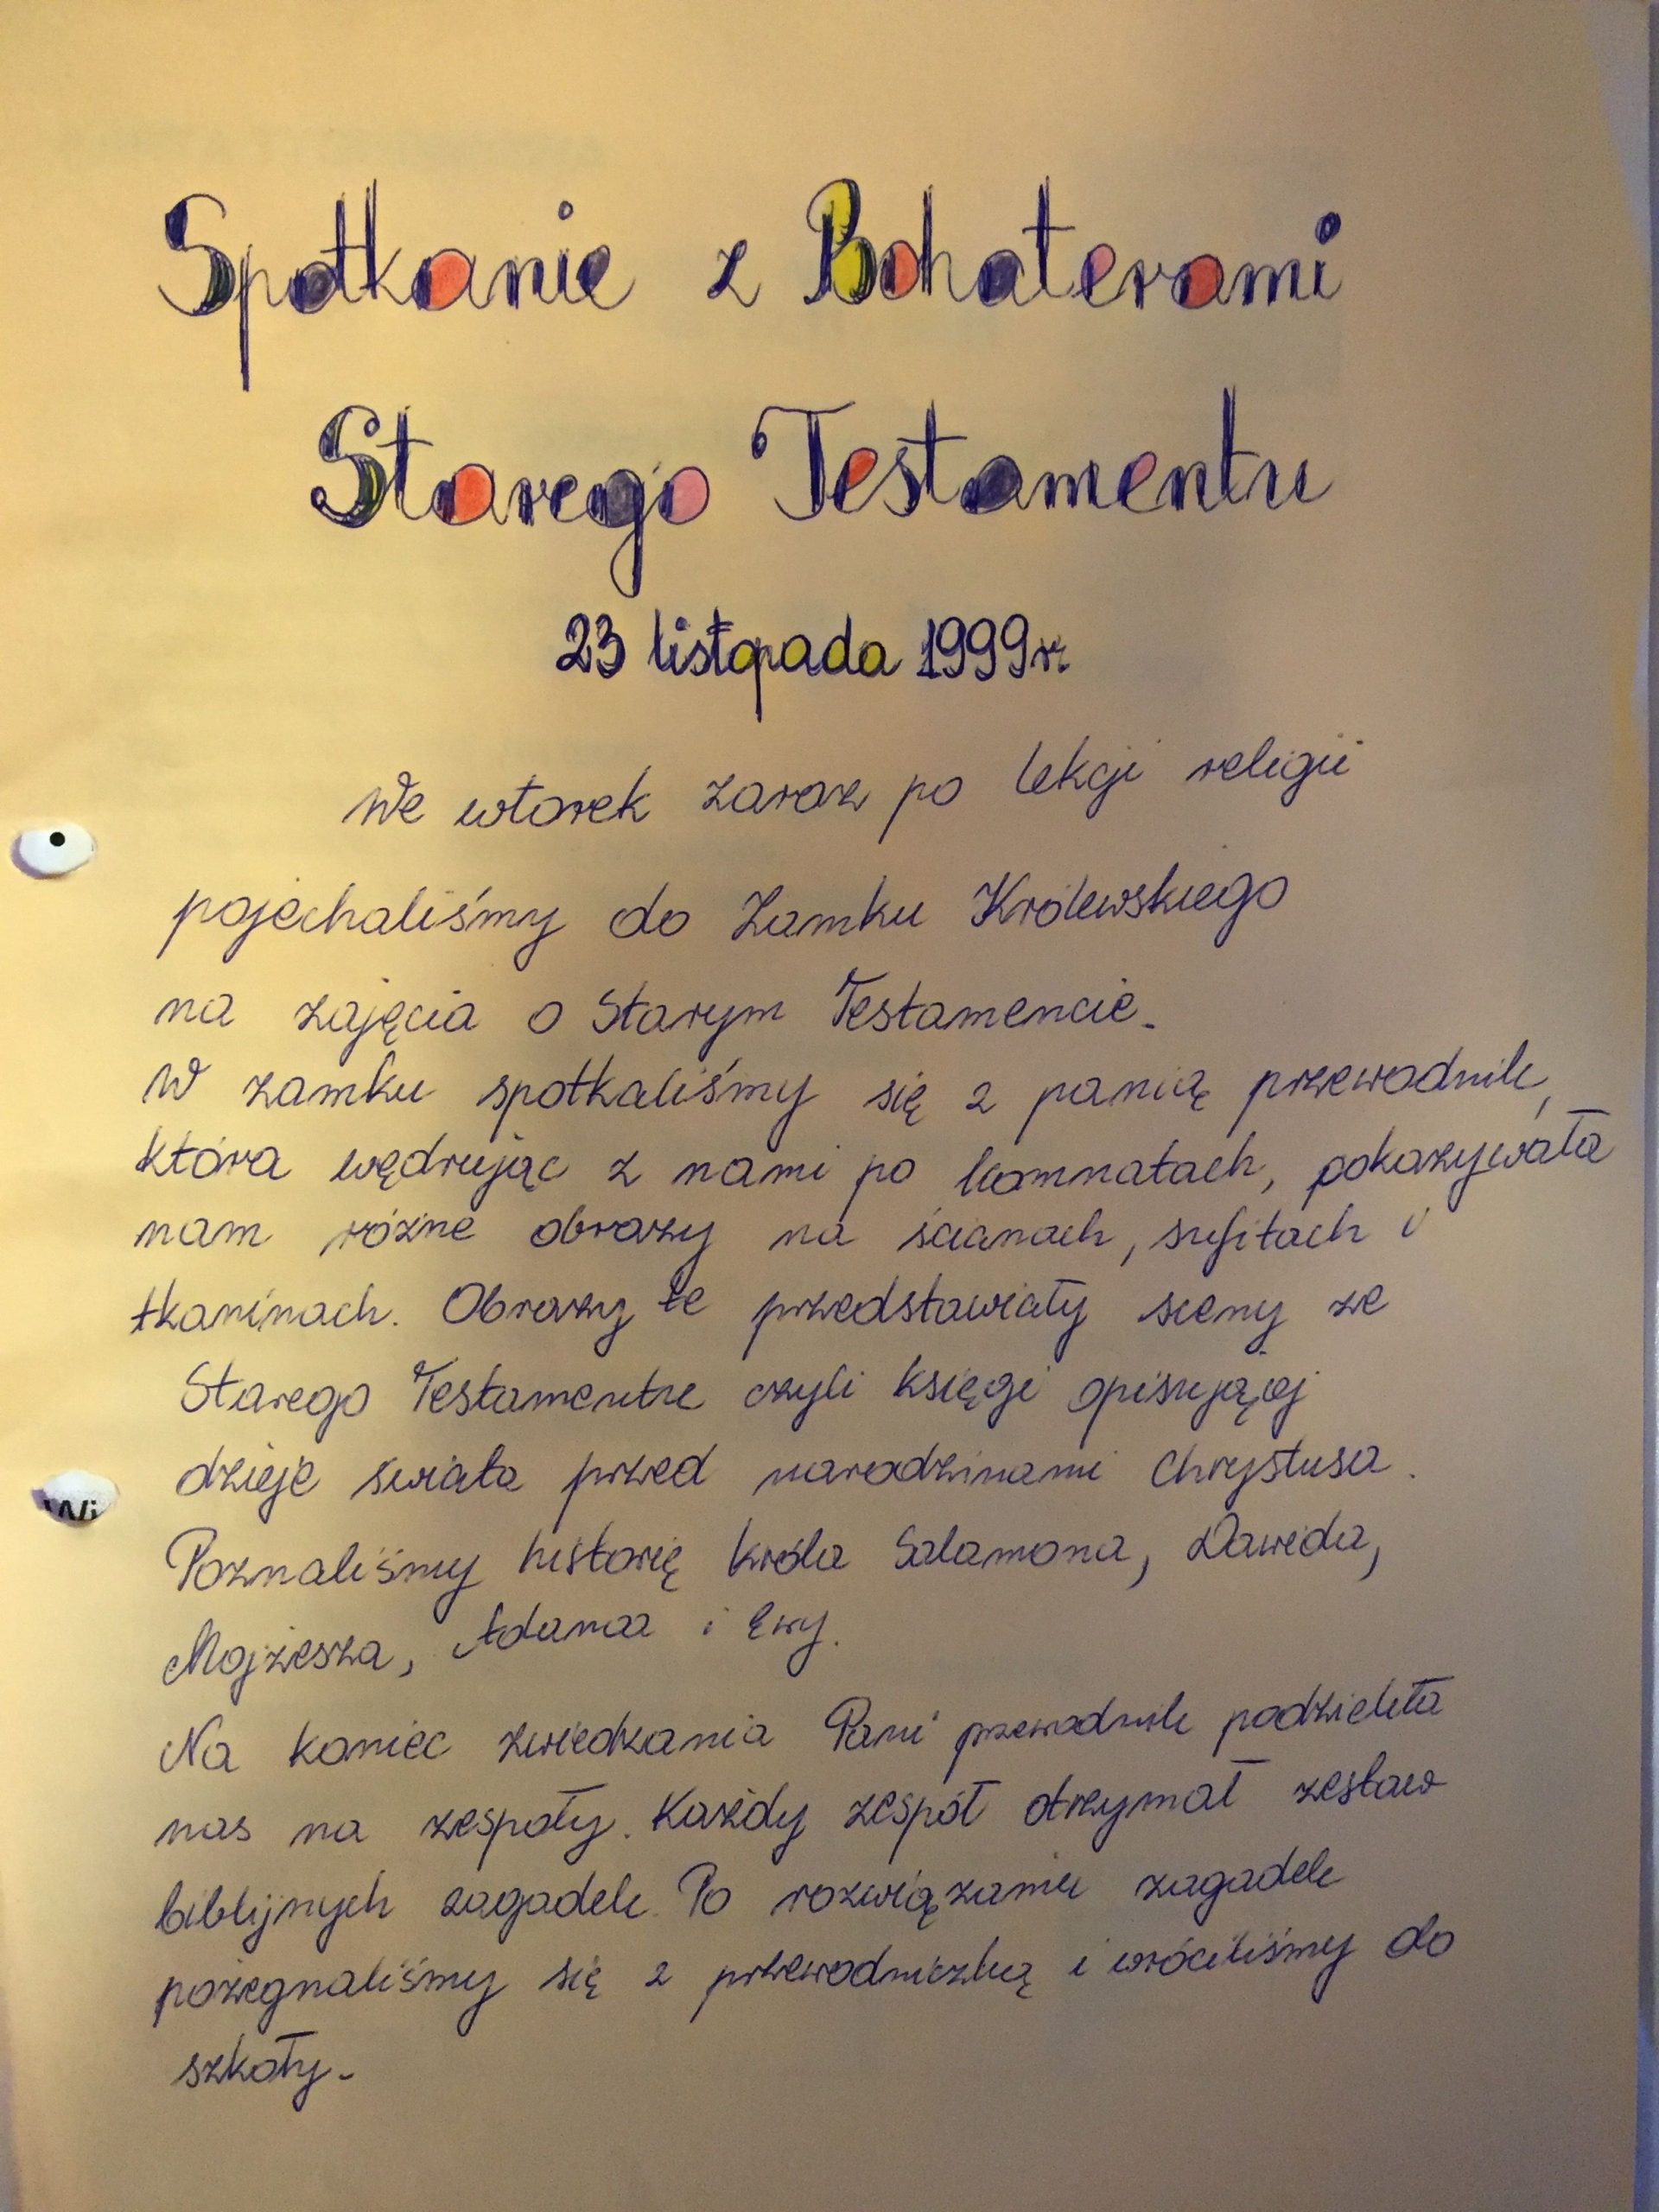 Spotkanie z Bohaterami
Starego Testamentu
23 listopada 1999r
We wtorek zaraz po lekcji religii
pojechaliśmy do Zamku Królewskiego
na zajęcia o Starym Testamencie.
W zamku spotkaliśmy się z panią przewodnik,
która wędrując z nami po komnatach, pokazywała
nam różne obrazy na ścianach, sufitach i
tkaninach. Obrazy te przedstawiały sceny ze
Starego Testamentu czyli księgi opisującej
dzieje świata przed narodzinami Chrystusa.
Poznaliśmy historię króla Salamona, Dawida,
Mojżesza, Adama i Ewy.
Na koniec zwiedzania Pani przewodnik podzieliła
nas na zespoły. Każdy zespół otrzymał zestaw
biblijnych zagadek. Po rozwiązaniu zagadek
pożegnaliśmy się z przewodniczką i wróciliśmy do
szkoły.